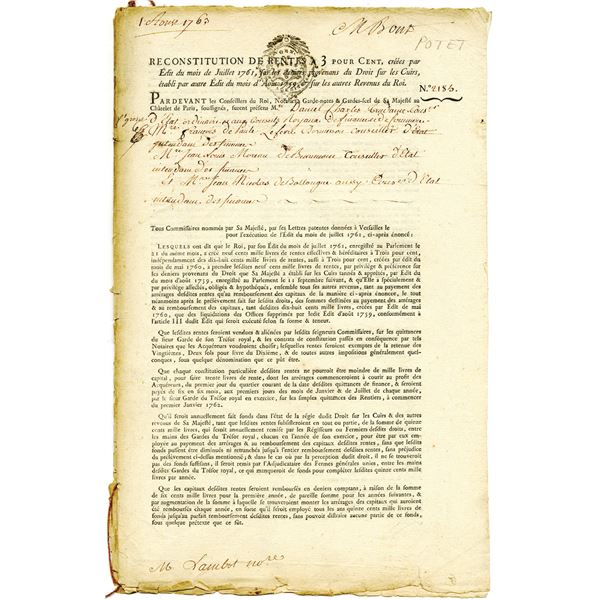 1763
POTET
RECONSTITUTION DE RENTES A 3 POUR CENT, créées par
Edit du mois de Juillet 1761, sur les deniers provenans du Droit sur les Cuirs,
établi par autre Edit du mois d'Août 1759, & sur les autres Revenus du Roi.
N.° 2186.
PARDEVANT les Conseillers du Roi, Notaires, Garde-notes & Gardes-scel de Sa Majesté au
Châtelet de Paris, soussignés, furent présens M.re Daniel Charles
Conseiller d'état
intendant des finances
M.re Jean Louis Moreau de Beaumont Conseiller d'Etat
intendant des finances
Et M.re Jean Nicolas de Boullongne aussy d'Etat
intendant des finances
Tous Commissaires nommés par Sa Majesté, par ses Lettres patentes données à Versailles le
pour l'exécution de l'Edit du mois de juillet 1761, ci-après énoncé:
LESQUELS ont dit que le Roi, par son Edit du mois de juillet 1761, enregistré au Parlement le
21 du même mois, a créé neuf cents mille livres de rentes effectives & héréditaires à Trois pour cent,
indépendamment des dix-huit cents mille livres de rentes, aussi à Trois pour cent, créées par édit du
mois de mai 1760, à prendre lesdites neuf cents mille livres de rentes, par privilége & préférence sur
les deniers provenans du Droit que Sa Majesté a établi sur les Cuirs tannés & apprêtés, par Edit du
mois d'août 1759, enregistré au Parlement le 11 septembre suivant, & qu'Elle a spécialement &
par privilége affectés, obligés & hypothéqués, ensemble tous ses autres revenus, tant au payement des
arrérages desdites rentes qu'au remboursement des capitaux de la manière ci-après énoncée, le tout
néanmoins après le prélèvement fait sur lesdits droits, des sommes destinées au payement des arrérages
& au remboursement des capitaux, tant desdites dix-huit cents mille livres, créées par Edit de mai
1760, que des liquidations des Offices supprimés par ledit Edit d'août 1759, conformément à
l'article III dudit Edit qui seroit exécuté selon sa forme & teneur.
Que lesdites rentes seroient vendues & aliénées par lesdits seigneurs Commissaires, sur les quittances
du sieur Garde de son Trésor royal, & les contrats de constitution passés en conséquence par tels
Notaires que les Acquéreurs voudroient choisir, lesquelles rentes seroient exemptes de la retenue des
Vingtièmes, Deux sols pour livre du Dixième, & de toutes autres impositions généralement quel-
conques, sous quelque dénomination que ce pût être.
Que chaque constitution particulière desdites rentes ne pourroit être moindre de mille livres de
capital, pour faire trente livres de rente, dont les arrérages commenceroient à courir au profit des
Acquéreurs, du premier jour du quartier courant de la date desdites quittances de finance, & seroient
payés de six en six mois, aux premiers jours des mois de Janvier & de Juillet de chaque année,
par le sieur Garde du Trésor royal en exercice, sur les simples quittances des Rentiers, à commencer
du premier Janvier 1762.
Qu'il seroit annuellement fait fonds dans l'état de la régie dudit Droit sur les Cuirs & des autres
revenus de Sa Majesté, tant que lesdites rentes subsisteroient en tout ou partie, de la somme de quinze
cents mille livres, qui seroit annuellement remise par les Régisseurs ou Fermiers desdits droits, entre
les mains des Gardes du Trésor royal, chacun en l'année de son exercice, pour être par eux employée
au payement des arrérages & au remboursement des capitaux desdites rentes, sans que lesdits
fonds pussent être diminués ni retranchés jusqu'à l'entier remboursement desdites rentes, sans préjudice
du privilége ci-dessus mentionné; & dans le cas où par la perception dudit droit, il ne se trouveroit
pas des fonds suffisans, il seroit remis par l'Adjudicataire des Fermes générales unies, entre les mains
desdits Gardes du Trésor royal, ce qui manqueroit de fonds pour compléter lesdites quinze cents mille
livres par année.
Que les capitaux desdites rentes seroient remboursés en deniers comptans, à raison de la somme
de six cents mille livres pour la première année, de pareille somme par les années suivantes, &
par augmentation de la somme à laquelle se trouveroient monter les arrérages des capitaux qui auroient
été remboursés chaque année, en sorte qu'il seroit employé tous les ans quinze cents mille livres de
fonds jusqu'au parfait remboursement desdites rentes, sans pouvoir distraire aucune chose de ce fonds,
sous quelque prétexte que ce fût.
M. Lambot no.re